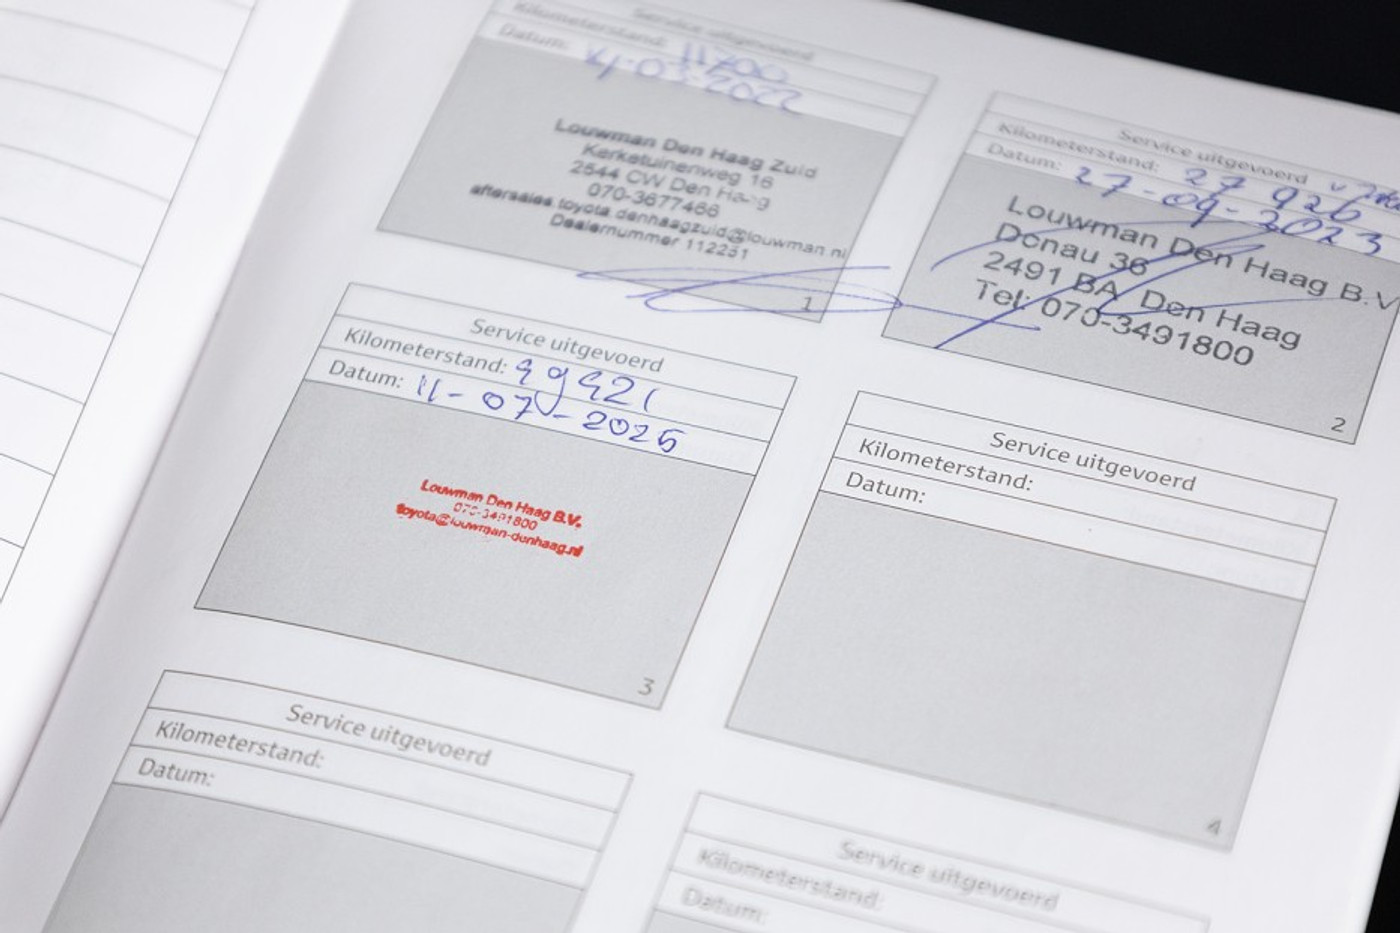 Service uitgevoerd
Kilometerstand: 11700
Datum:
Louwman Den Haag Zuid
Kerketuinenweg 16
2544 CW Den Haag
070-3677466
aftersales.toyota.denhaagzuid@louwman.nl
Dealernummer 112251
1
Service uitgevoerd
Kilometerstand: 27926
Datum: 27-09-2023
Louwman Den Haag B.V.
Donau 36
2491 BA Den Haag
Tel: 070-3491800
2
Service uitgevoerd
Kilometerstand: 49421
Datum: 11-07-2025
Louwman Den Haag B.V.
070-3491800
toyota@louwman-denhaag.nl
3
Service uitgevoerd
Kilometerstand:
Datum:
4
Service uitgevoerd
Kilometerstand:
Datum:
Service uitgevoerd
Kilometerstand:
Datum: